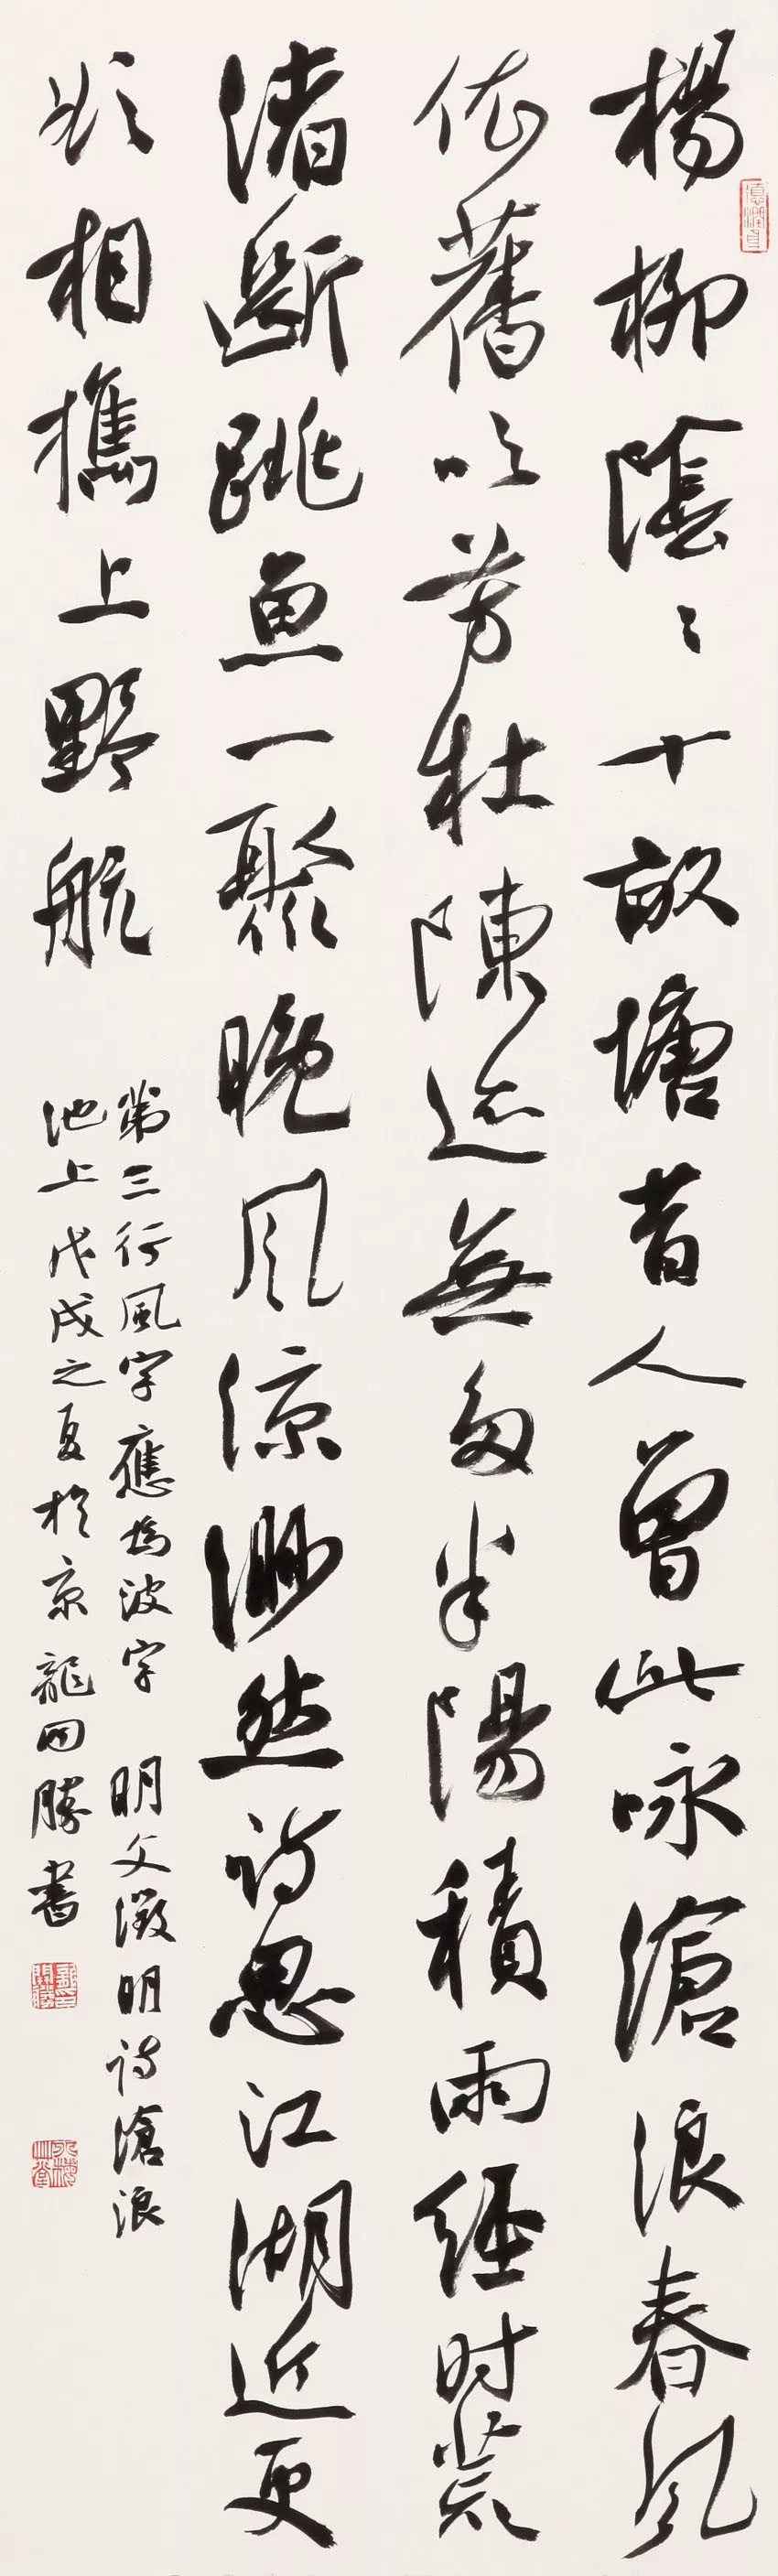 楊柳陰〻十畝塘昔人曾此咏滄浪春風
依舊吹芳杜陳迹無多半陽積雨經时荒
渚斷跳魚一聚晚风涼渺然诗思江湖近更
欲相擕上野航
第三行風字應為波字 明文徵明诗滄浪
池上戊戌之夏於京龍開勝書
德潤身